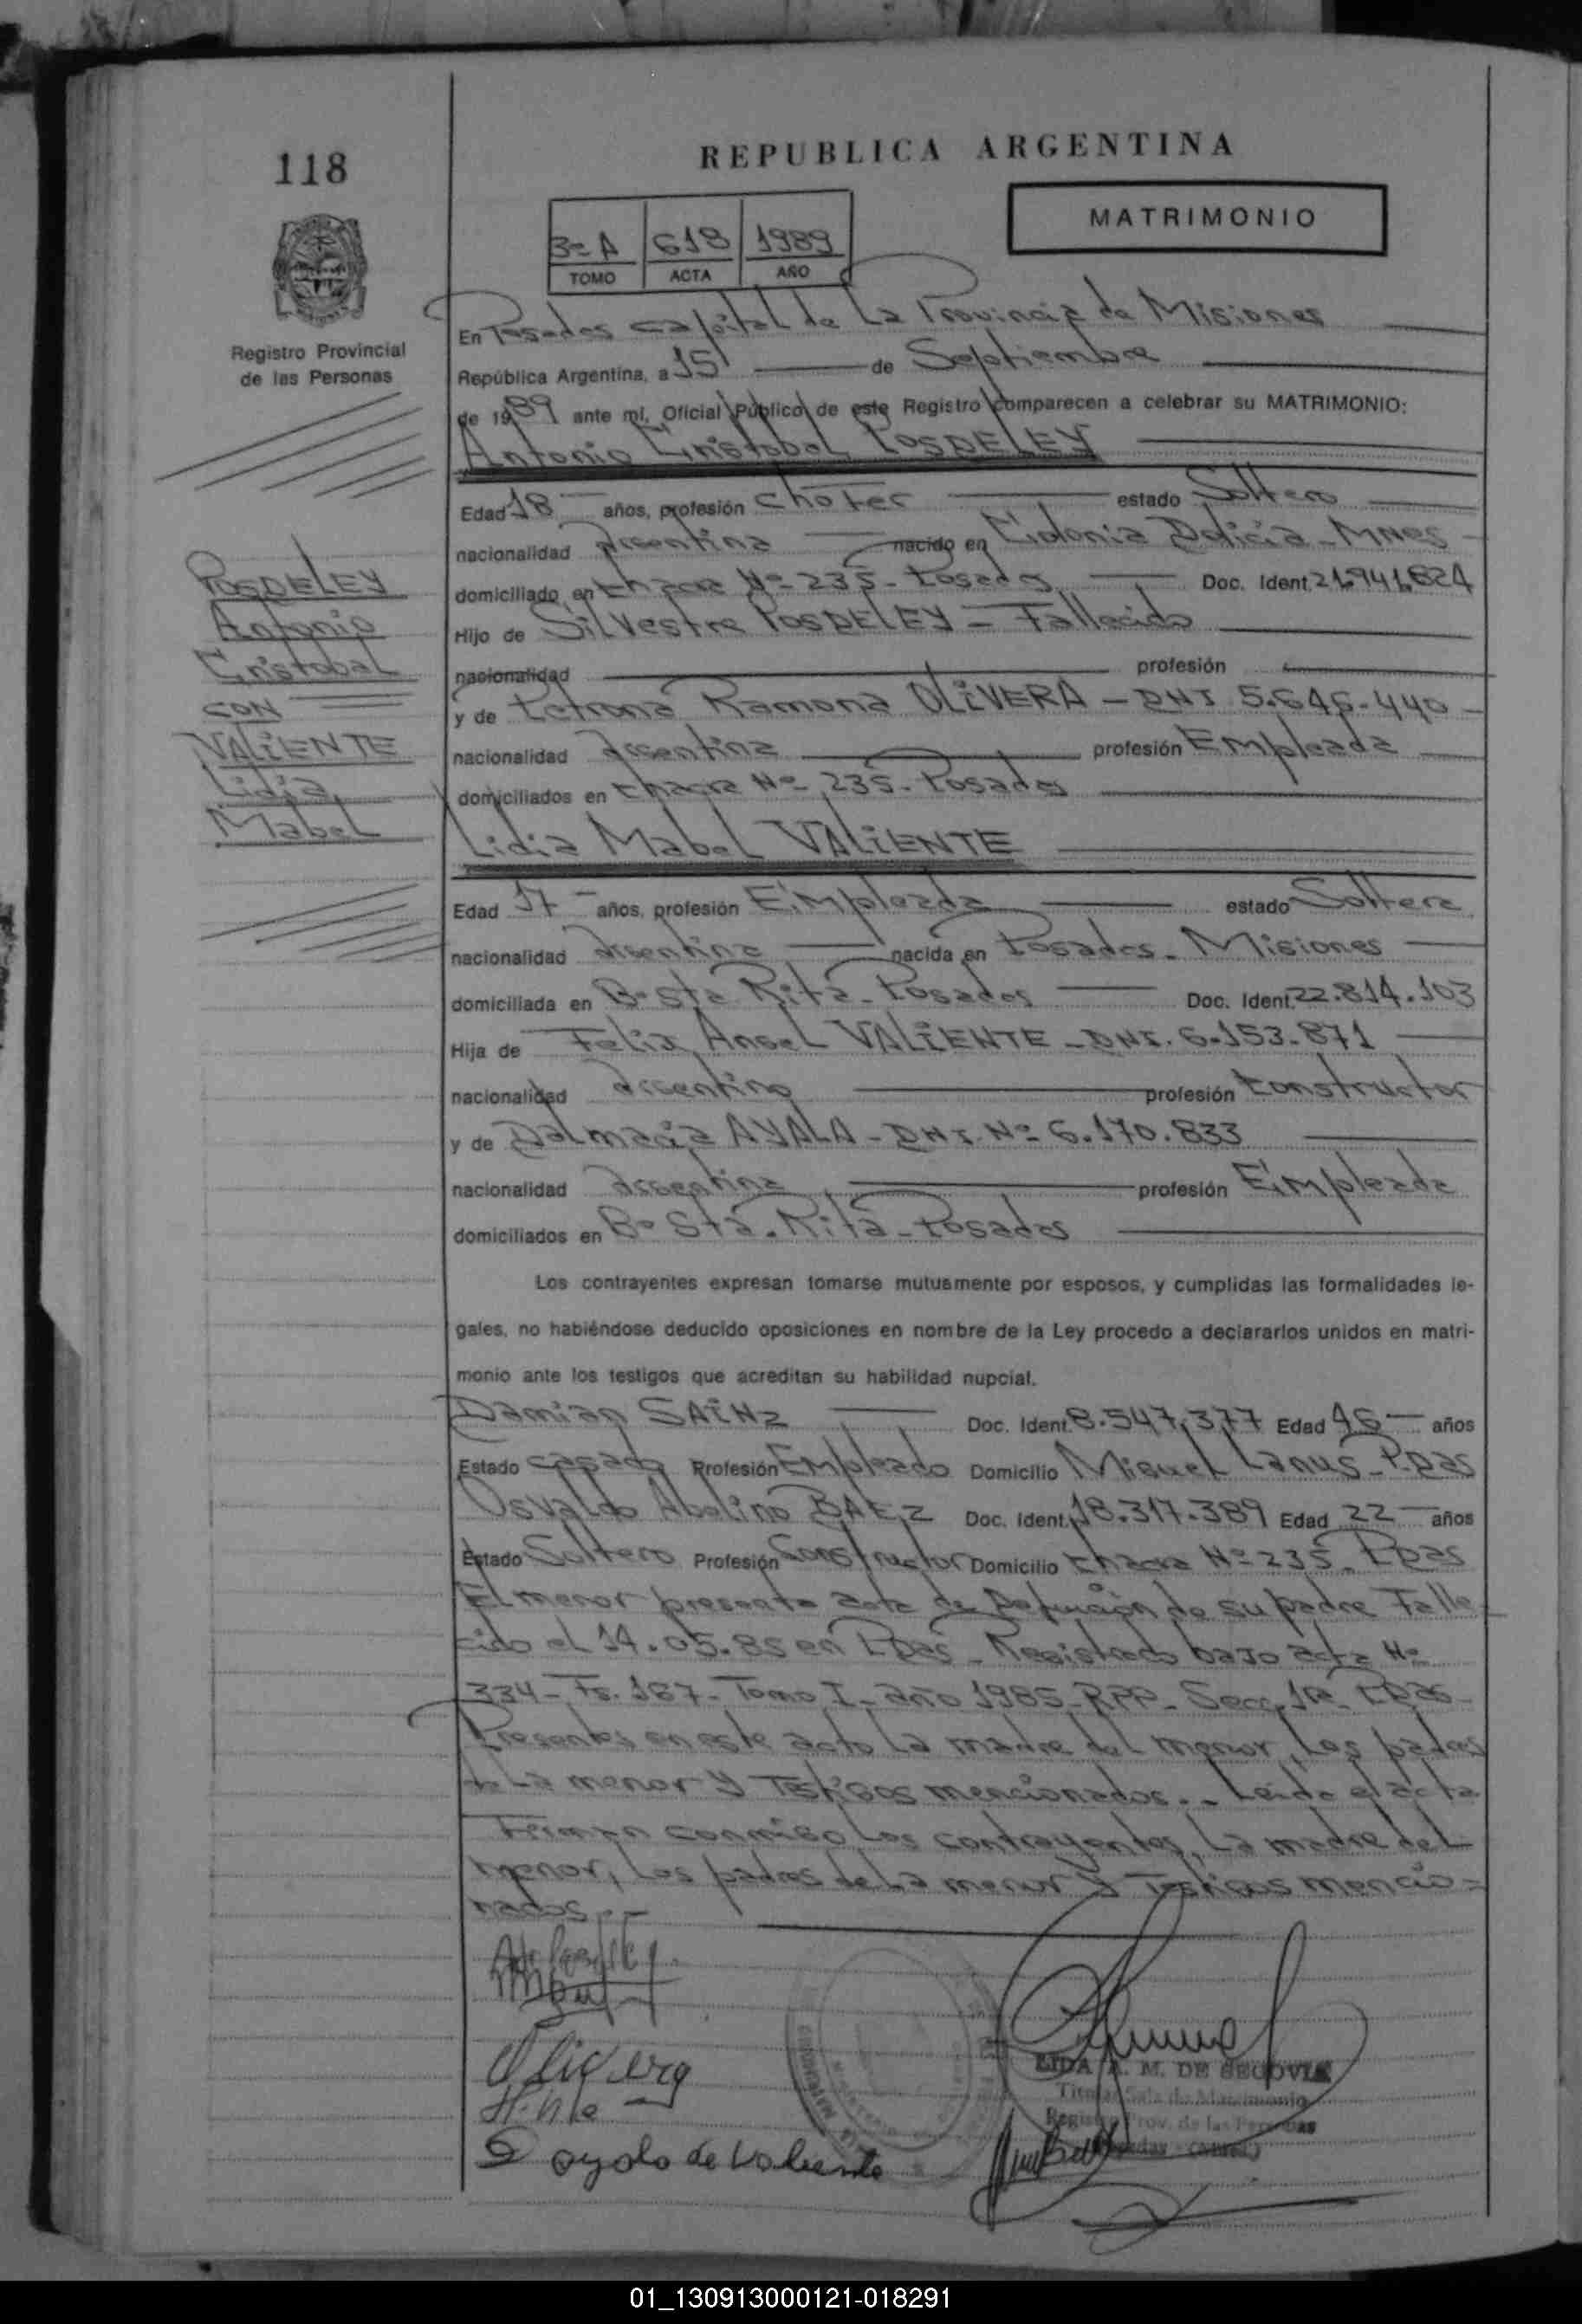 118
REPUBLICA ARGENTINA
MATRIMONIO
3º A 618 1989
TOMO ACTA AÑO
Registro Provincial
de las Personas
En Posadas capital de La Provincia de Misiones
República Argentina, a 15 de Septiembre
de 1989 ante mí, Oficial Público de este Registro comparecen a celebrar su MATRIMONIO:
Antonio Cristobal POSDELEY
Edad 18 años, profesión chofer estado Soltero
nacionalidad Argentina nacido en Colonia Delicia - MNES
domiciliado en Chacra Nº 235 - Posadas Doc. Ident. 21.941.824
Hijo de Silvestre POSDELEY - Fallecido
nacionalidad profesión
y de Petrona Ramona OLIVERA - DNI 5.646.440
nacionalidad Argentina profesión Empleada
domiciliados en Chacra Nº 235 - Posadas
POSDELEY
Antonio
Cristobal
CON
VALIENTE
Lidia
Mabel
Lidia Mabel VALIENTE
Edad 17 años, profesión Empleada estado Soltera
nacionalidad Argentina nacida en Posadas - Misiones
domiciliada en Bº Sta Rita - Posadas Doc. Ident. 22.814.103
Hija de Felix Angel VALIENTE - DNI. 6.153.871
nacionalidad Argentino profesión Constructor
y de Dalmacia AYALA - DNI. Nº 6.170.833
nacionalidad Argentina profesión Empleada
domiciliados en Bº Sta. Rita - Posadas
Los contrayentes expresan tomarse mutuamente por esposos, y cumplidas las formalidades le-
gales, no habiéndose deducido oposiciones en nombre de la Ley procedo a declararlos unidos en matri-
monio ante los testigos que acreditan su habilidad nupcial.
Damian SAINZ Doc. Ident. 8.547.377 Edad 46 años
Estado casado Profesión Empleado Domicilio Miguel Lanus - Pdas
Osvaldo Abelino BAEZ Doc. Ident. 18.317.389 Edad 22 años
Estado Soltero Profesión Constructor Domicilio Chacra Nº 235 - Pdas
El menor presenta acta de Defunción de su padre Falle-
cido el 14.05.85 en Pdas - Registrado bajo acta Nº
334 - Fs. 167 - Tomo I - año 1985 - RPP - Secc. 1ª - Pdas -
Presentes en este acto La madre del menor, Los padres
de La menor y Testigos mencionados. - Leida el acta
Firman conmigo Los contrayentes, La madre del
menor, Los padres de La menor y Testigos mencio-
nados. -
Olivera
D ayala de Valiente
LIDA A. M. DE SEGOVIA
Titular Sala de Matrimonio
Registro Prov. de las Personas
01_130913000121-018291